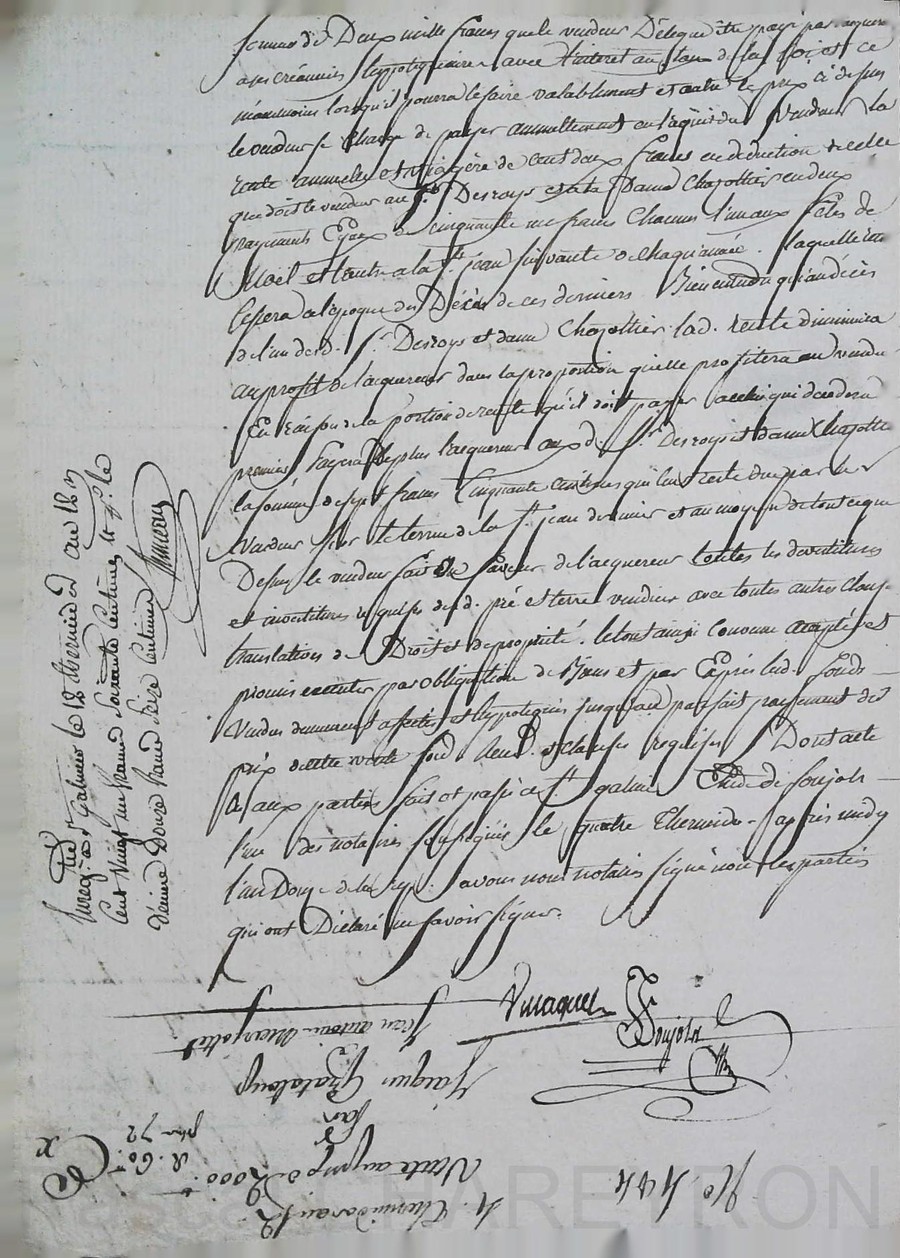 somme de Deux mille francs que le vendeur Délegue être payé par acquereur
a ses créanciers hypotiquaires avec l'interet au taux de la loi et ce
néanmoins lorsqu'il pourra le faire valablement et outre le prix ci dessus
le vendeur se charge de payer annuellement en l'aquit du Vendeur la
rente annuelle et viagère de cent deux francs en deduction de celle
que doit le vendeur au Sr. Desroys et a la Dame Chazottier en deux
payments Egaux de cinquante un francs Chacun l'un aux fetes de
Noël et l'autre a la St. jean suivante de chaque année. laquelle
cessera a l'epoque du Décès de ces derniers Bien entendu qu'au décès
de l'un desd. Sr. Desroys et dame Chazottier lad. rente diminuera
au profit de l'acquereur dans la proportion qu'elle profitera au vendeur
En raison de la portion de rente qu'il doit payer a celui qui decedera
premier payera de plus l'acquereur aux d. Sr. Desroys et dame Chazottier
la somme de sept francs Cinquante centimes qui leur reste due par le
Vendeur sur le terme de la St. jean dernier et au moyen de tout ce que
Dessus le vendeur fait en faveur de l'acquereur toutes les devetitures
et invetitures requises desd. pré et terre vendus avec toutes autres clauses
translatives de Droit et de propriété. le tout ainsi Convenu accepté et
promis executer par obligation de Biens et par Exprès lesd. fonds
Vendus demeurent afectés et hypotequés jusqu'au parfait payement du
prix de cette vente sous Renon. et clauses requises Dont acte
aux parties fait et passé a St. galmier Etude de Soujols
l'un des notaires soussignés le quatre thermidor après midy
l'an Douze de la rep. avons nous notaires signé non les parties
qui ont Déclaré ne savoir signer.
Vinaquet
Soujols
Enreg. à St. Galmier le 12 thermidor an 12
Cent Vingt un francs Soixante Centimes
décime Douze francs Seize Centimes
Jean antoine
Jacques Grataloup
par
Vente au prix de 2000
4 Thermidor an 12
No. 444